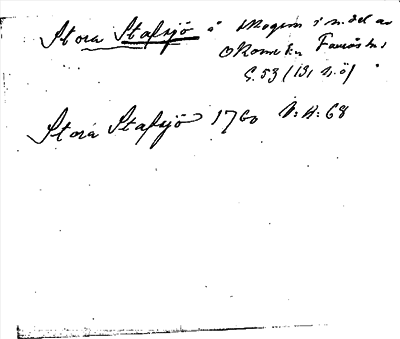 Stora Stafsjö å skogen i n. del av
okome sn Faurås hd
S. 53 (13, n.ö)
Stora Stafsjö 1760 N: A: 68